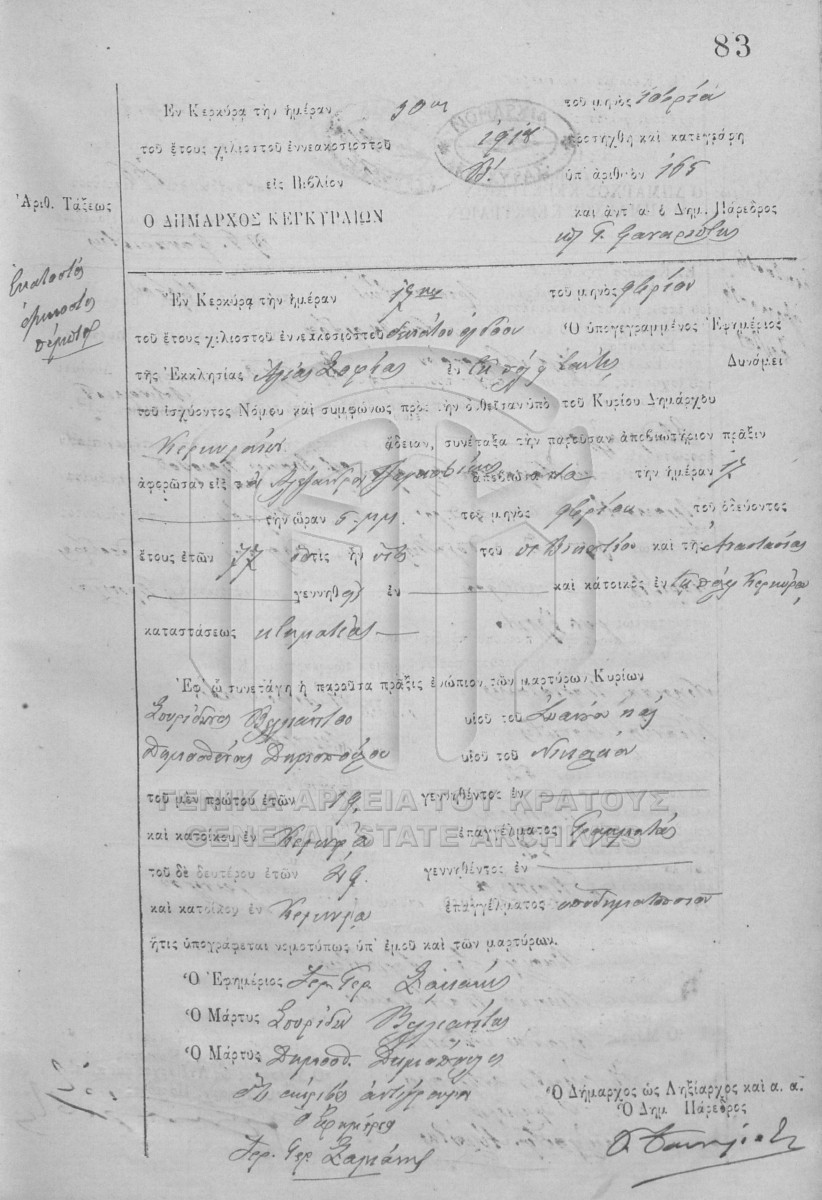 83
Ἐν Κερκύρᾳ τὴν ἡμέραν τοῦ μηνὸς
τοῦ ἔτους χιλιοστοῦ ἐννεακοσιοστοῦ 1918 προσήχθη καὶ κατεγράφη
εἰς Βιβλίον Β' ὑπ' ἀριθμὸν 165
Ἀριθ. Τάξεως
Ὁ ΔΗΜΑΡΧΟΣ ΚΕΡΚΥΡΑΙΩΝ καὶ ἀντ' α. ὁ Δημ. Πάρεδρος
Ἑκατοστὸς
ἑξηκοστὸς
πέμπτος
Ἐν Κερκύρᾳ τὴν ἡμέραν 17ην τοῦ μηνὸς
τοῦ ἔτους χιλιοστοῦ ἐννεακοσιοστοῦ δεκάτου ὀγδόου Ὁ ὑπογεγραμμένος Ἐφημέριος
τῆς Ἐκκλησίας Ἁγίας Σοφίας ἐν τῇ πόλει ταύτῃ Δυνάμει
τοῦ ἰσχύοντος Νόμου καὶ συμφώνως πρὸς τὴν δοθεῖσαν ὑπὸ τοῦ Κυρίου Δημάρχου
Κερκυραίων ἄδειαν, συνέταξα τὴν παροῦσαν ἀποβιωτήριον πρᾶξιν
ἀφορῶσαν εἰς τὸν Ἀλέξανδρον ἀποβιώσαντα τὴν ἡμέραν 17
τὴν ὥραν 5 μ.μ. τοῦ μηνὸς τοῦ ὁδεύοντος
ἔτους ἐτῶν 77 ὅστις ἦν υἱὸς τοῦ καὶ τῆς Ἀναστασίας
γεννηθεὶς ἐν καὶ κάτοικος ἐν τῇ πόλει Κερκύρᾳ
καταστάσεως κτηματίας
Ἐφ' ᾧ συνετάγη ἡ παροῦσα πρᾶξις ἐνώπιον τῶν μαρτύρων Κυρίων
Σπυρίδωνος Βελλιανίτου υἱοῦ τοῦ
Δημοσθένους Δημοπούλου υἱοῦ τοῦ Νικολάου
τοῦ μὲν πρώτου ἐτῶν γεννηθέντος ἐν
ΓΕΝΙΚΑ ΑΡΧΕΙΑ ΤΟΥ ΚΡΑΤΟΥΣ
καὶ κατοίκου ἐν Κερκύρᾳ ἐπαγγέλματος
GENERAL STATE ARCHIVES
τοῦ δὲ δευτέρου ἐτῶν 49 γεννηθέντος ἐν
καὶ κατοίκου ἐν Κερκύρᾳ ἐπαγγέλματος ὑποδηματοποιοῦ
ἥτις ὑπογράφεται νομοτύπως ὑπ' ἐμοῦ καὶ τῶν μαρτύρων.
Ὁ Ἐφημέριος Ἱερ. Γερ.
Ὁ Μάρτυς Σπυρίδων Βελλιανίτης
Ὁ Μάρτυς Δημοσθ. Δημόπουλος
Ὅτι ἀκριβὲς ἀντίγραφον
Ὁ Ἐφημέριος
Ἱερ. Γερ.
Ὁ Δήμαρχος ὡς Ληξίαρχος καὶ α. α.
Ὁ Δημ Πάρεδρος